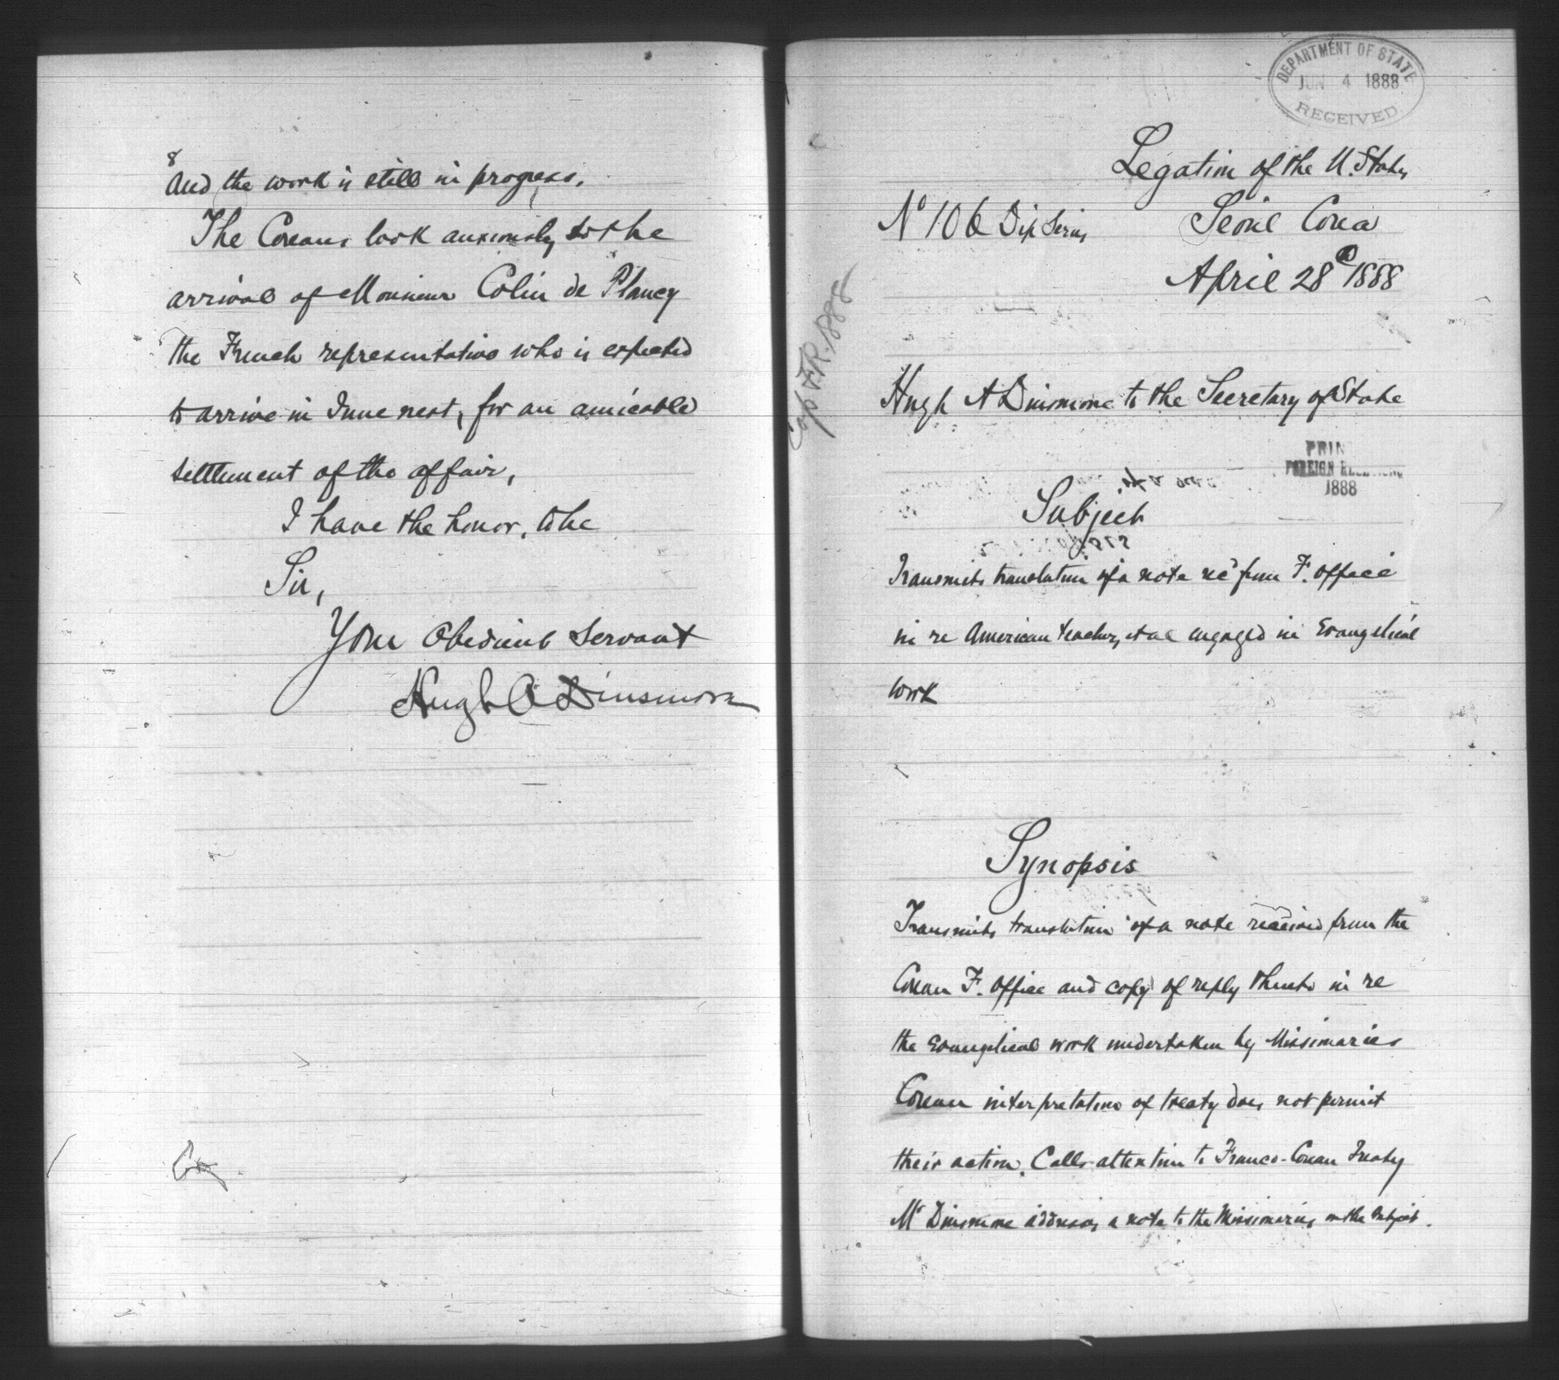 8
And the work is still in progress.
The Coreans look anxiously to the
arrival of Monsieur Colin de Plancy
the French representative who is expected
to arrive in June next, for an amicable
settlement of the affair,
I have the honor, to be
Sir,
Your Obedient Servant
Hugh A Dinsmore
DEPARTMENT OF STATE
JUN 4 1888
RECEIVED
Legation of the U. States
No 106 Dip Series Seoul Corea
April 28th 1888
Cop F.R. 1888
Hugh A Dinsmore to the Secretary of State
FOREIGN
1888
Subject
Transmits translation of a note recd from F. Office
in re American teachers et al engaged in Evangelical
work
Synopsis
Transmits translation of a note received from the
Corean F. Office and copy of reply thereto in re
the Evangelical work undertaken by Missionaries
Corean interpretation of treaty does not permit
their action. Calls attention to Franco-Corean Treaty
Mr Dinsmore addresses a note to the Missionaries on the subject.